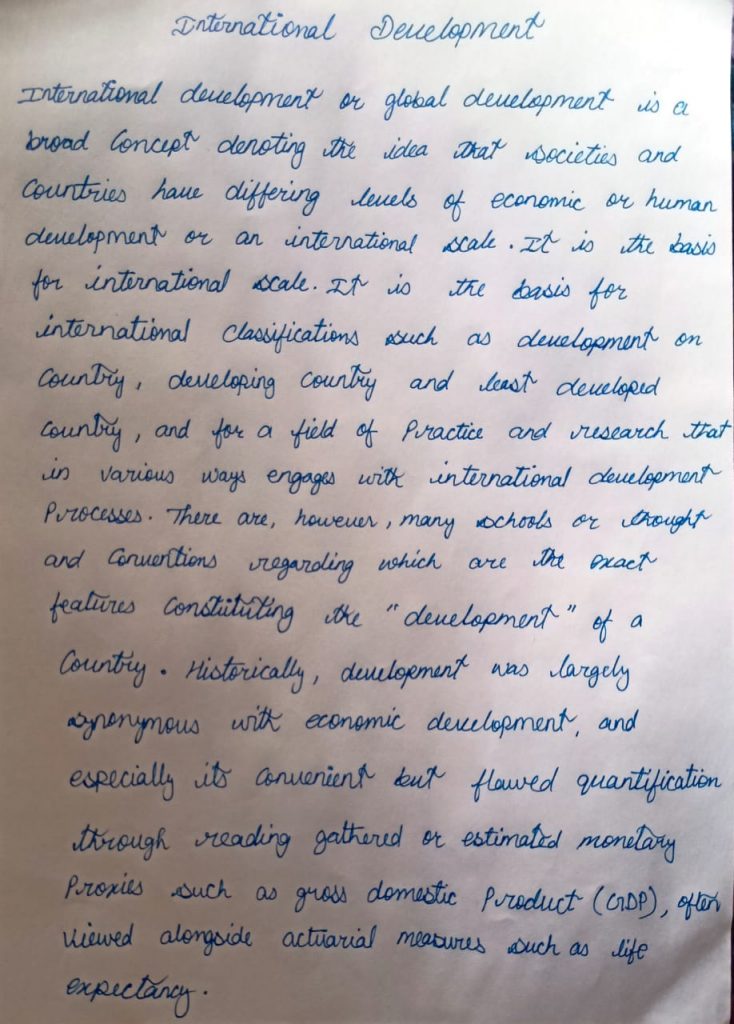 International Development
International development or global development is a
broad Concept denoting the idea that societies and
Countries have differing levels of economic or human
development or an international scale. It is the basis
for international scale. It is the basis for
international Classifications such as development on
Country, developing country and least developed
country, and for a field of Practice and research that
in various ways engages with international development
Processes. There are, however, many schools or thought
and Conventions regarding which are the exact
features Constituting the "development" of a
Country. Historically, development was largely
synonymous with economic development, and
especially its Convenient but flawed quantification
through reading gathered or estimated monetary
Proxies such as gross domestic Product (GDP), often
Viewed alongside actuarial measures such as life
expectancy.